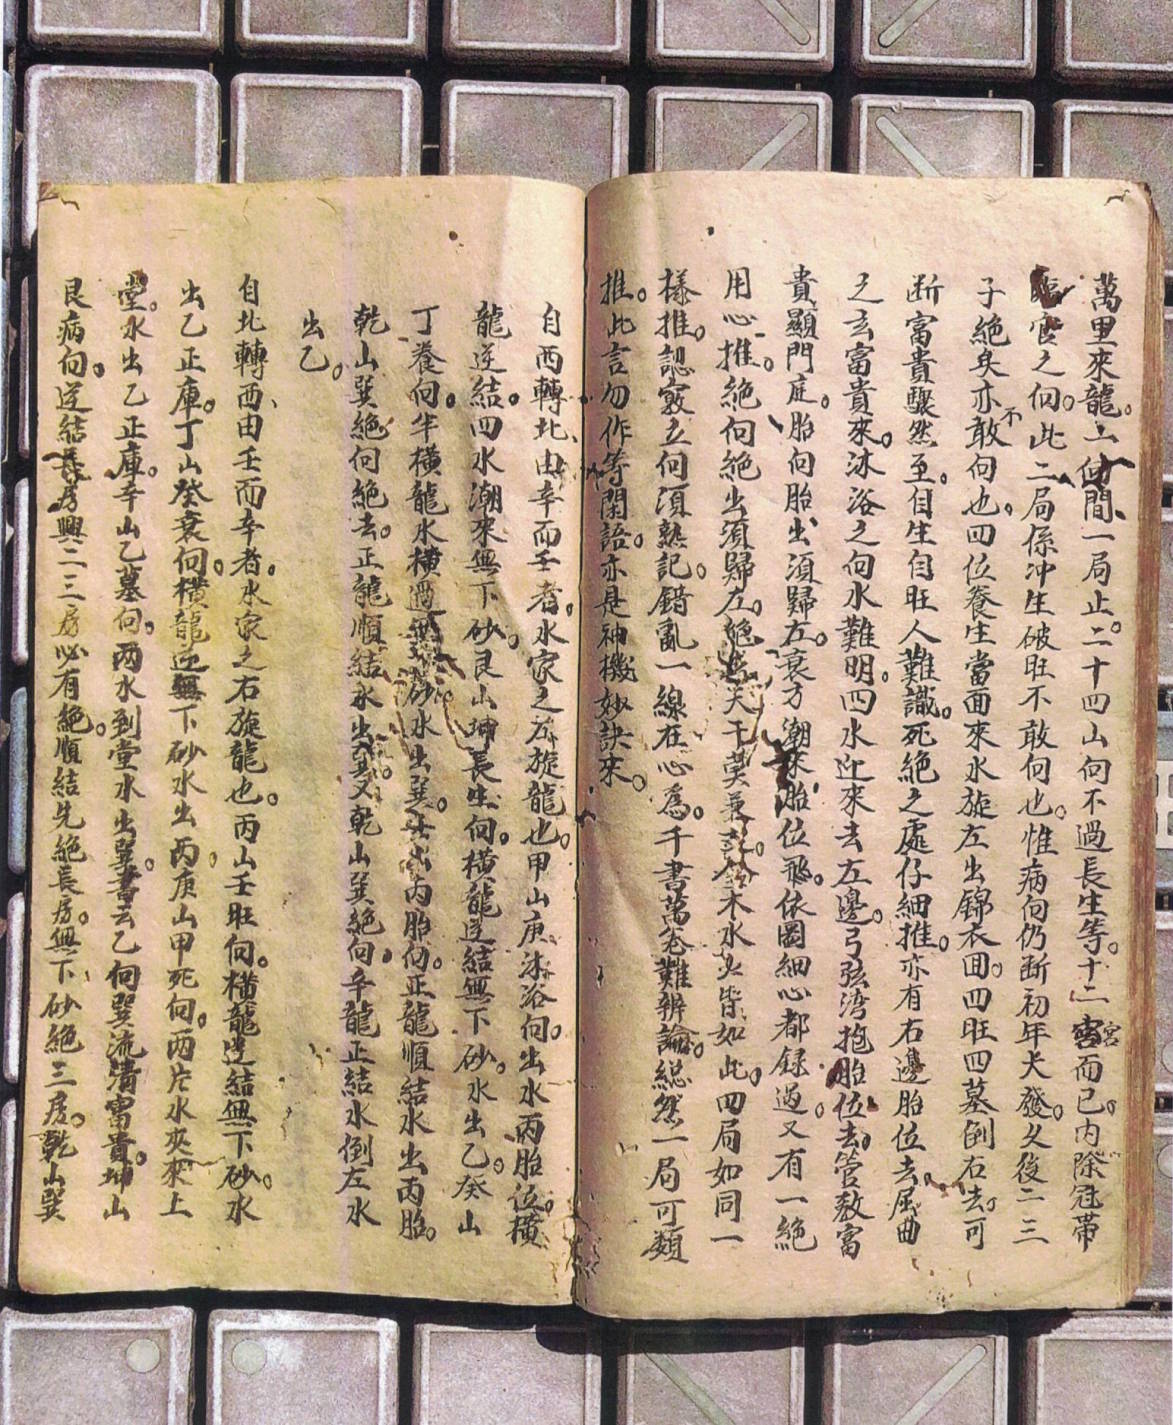 萬里來龍。一向間、一局止。二十四山向不過長生等。十二宮而已。内除冠帶
臨官之向。此二局係冲生破旺不敢向也。惟病向仍断初年大發。久後二三
子絶矣亦不敢向也。四位養生當面來水旋左出錦衣回。四旺四墓倒右去。可
断富貴驟然至。自生自旺人難識。死絶之處仔細推。亦有右邊胎位去。屈曲
之玄富貴來。沐浴之向水難明。四水迎來去左邊。弓弦湾抱胎位去。管教富
貴顯門庭。胎向胎出須歸右。衰方潮來胎位飛。依圖細心都録過。又有一絶
用心推。絶向絶出須歸左。絶去天干莫兼 金木水火皆如此。四局如同一
樣推。認竅立向須熟記。錯亂一線在心爲。千書萬卷難辨論。縂然一局可類
推。此言勿作等閑語。亦是神機妙訣來。
自西轉北由辛而壬者。水家之左旋龍也。甲山庚沐浴向。出水丙胎位。橫
龍逆結。四水潮來無下砂。艮山坤長生向。橫龍逆結無下砂。水出乙。癸山
丁養向。半橫龍水橫過無 砂水出巽。壬山丙胎向。正龍順結水出丙胎。
乾山巽絶向絶去。正龍順結水出巽。又乾山巽絶向。辛龍正結水倒左水
出乙。
自北轉西由壬而辛者。水家之右旋龍也。丙山壬旺向。橫龍逆結無下砂。水
出乙正庫。丁山癸衰向。橫龍逆無下砂水出丙。庚山甲死向。两片水夾來上
堂。水出乙正庫。辛山乙墓向。两水到堂水出巽。書云乙向巽流清富貴。坤山
艮病向。逆結長房興二三房必有絶。順結先絶長房。無下砂絶三房。乾山巽